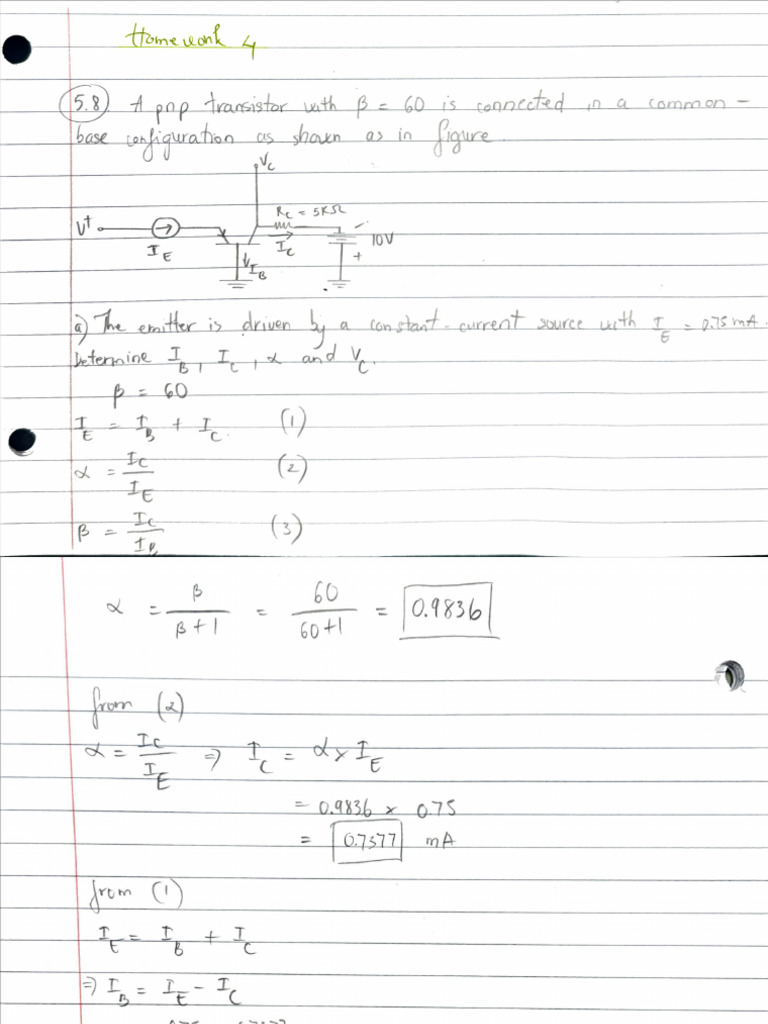 Homework 4
5.8) A pnp transistor with β = 60 is connected in a common-
base configuration as shown as in figure.
Vc
Rc = 5KΩ
V+
IE
IC
10V
+
IB
a) The emitter is driven by a constant-current source with IE = 0.75 mA.
Determine IB, IC, α and VC.
β = 60
IE = IB + IC (1)
α = IC/IE (2)
β = IC/IB (3)
α = β/β+1 = 60/60+1 = 0.9836
from (2)
α = IC/IE ⇒ IC = α × IE
= 0.9836 × 0.75
= 0.7377 mA
from (1)
IE = IB + IC
⇒ IB = IE - IC